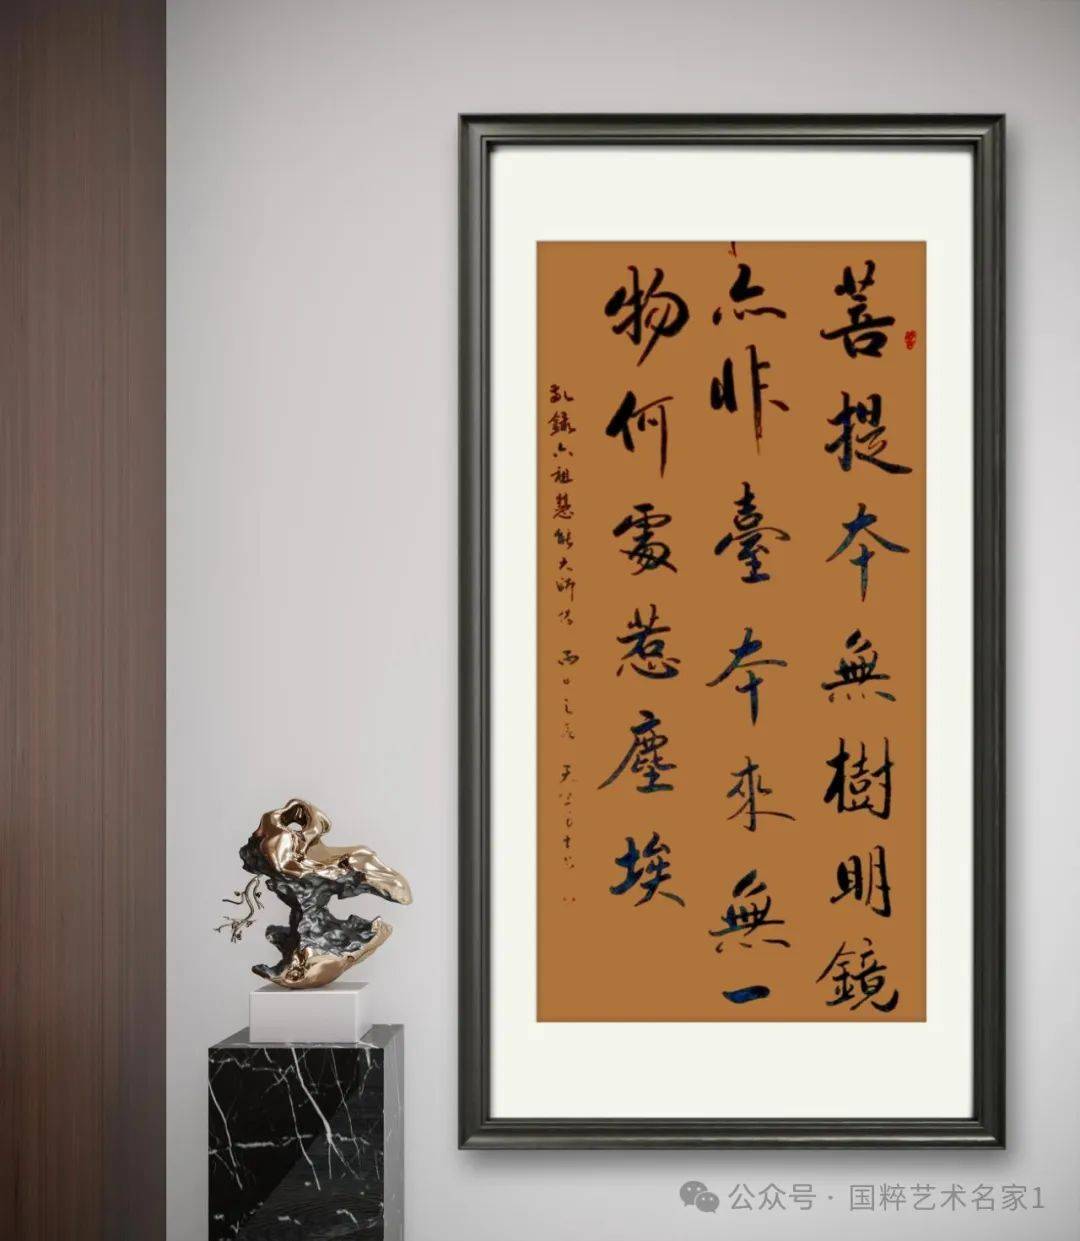 菩提本無樹明鏡
亦非臺本來無一
物何處惹塵埃
亂錄六祖慧能大師偈
公众号 · 国粹艺术名家1